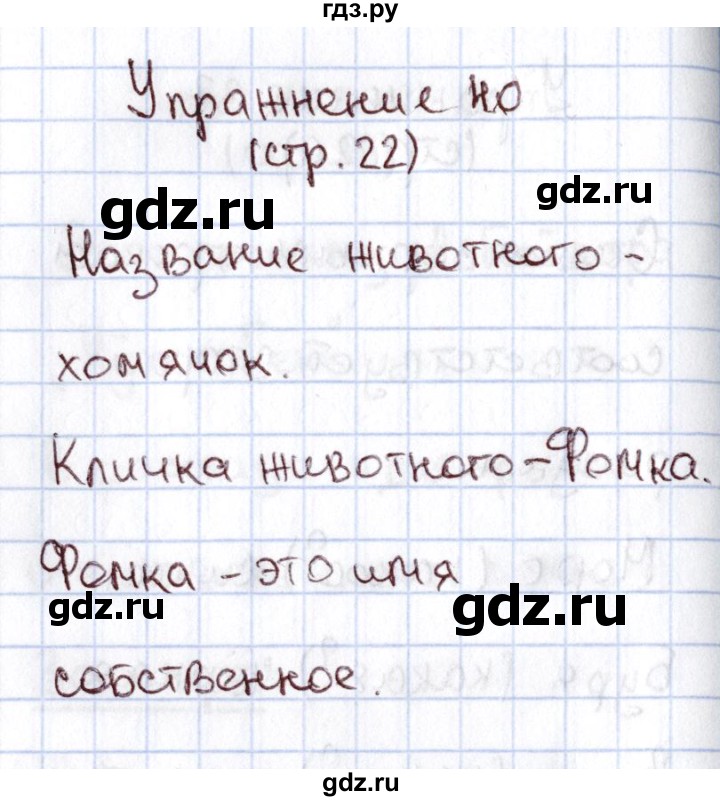 гдз.ру
Упражнение 40
(стр. 22)
gdz.ru
gdz.ru
Название животного -
хомячок.
Кличка животного - Фомка.
Фомка - это имя
gdz.ru
gdz.ru
собственное.
gdz.ru